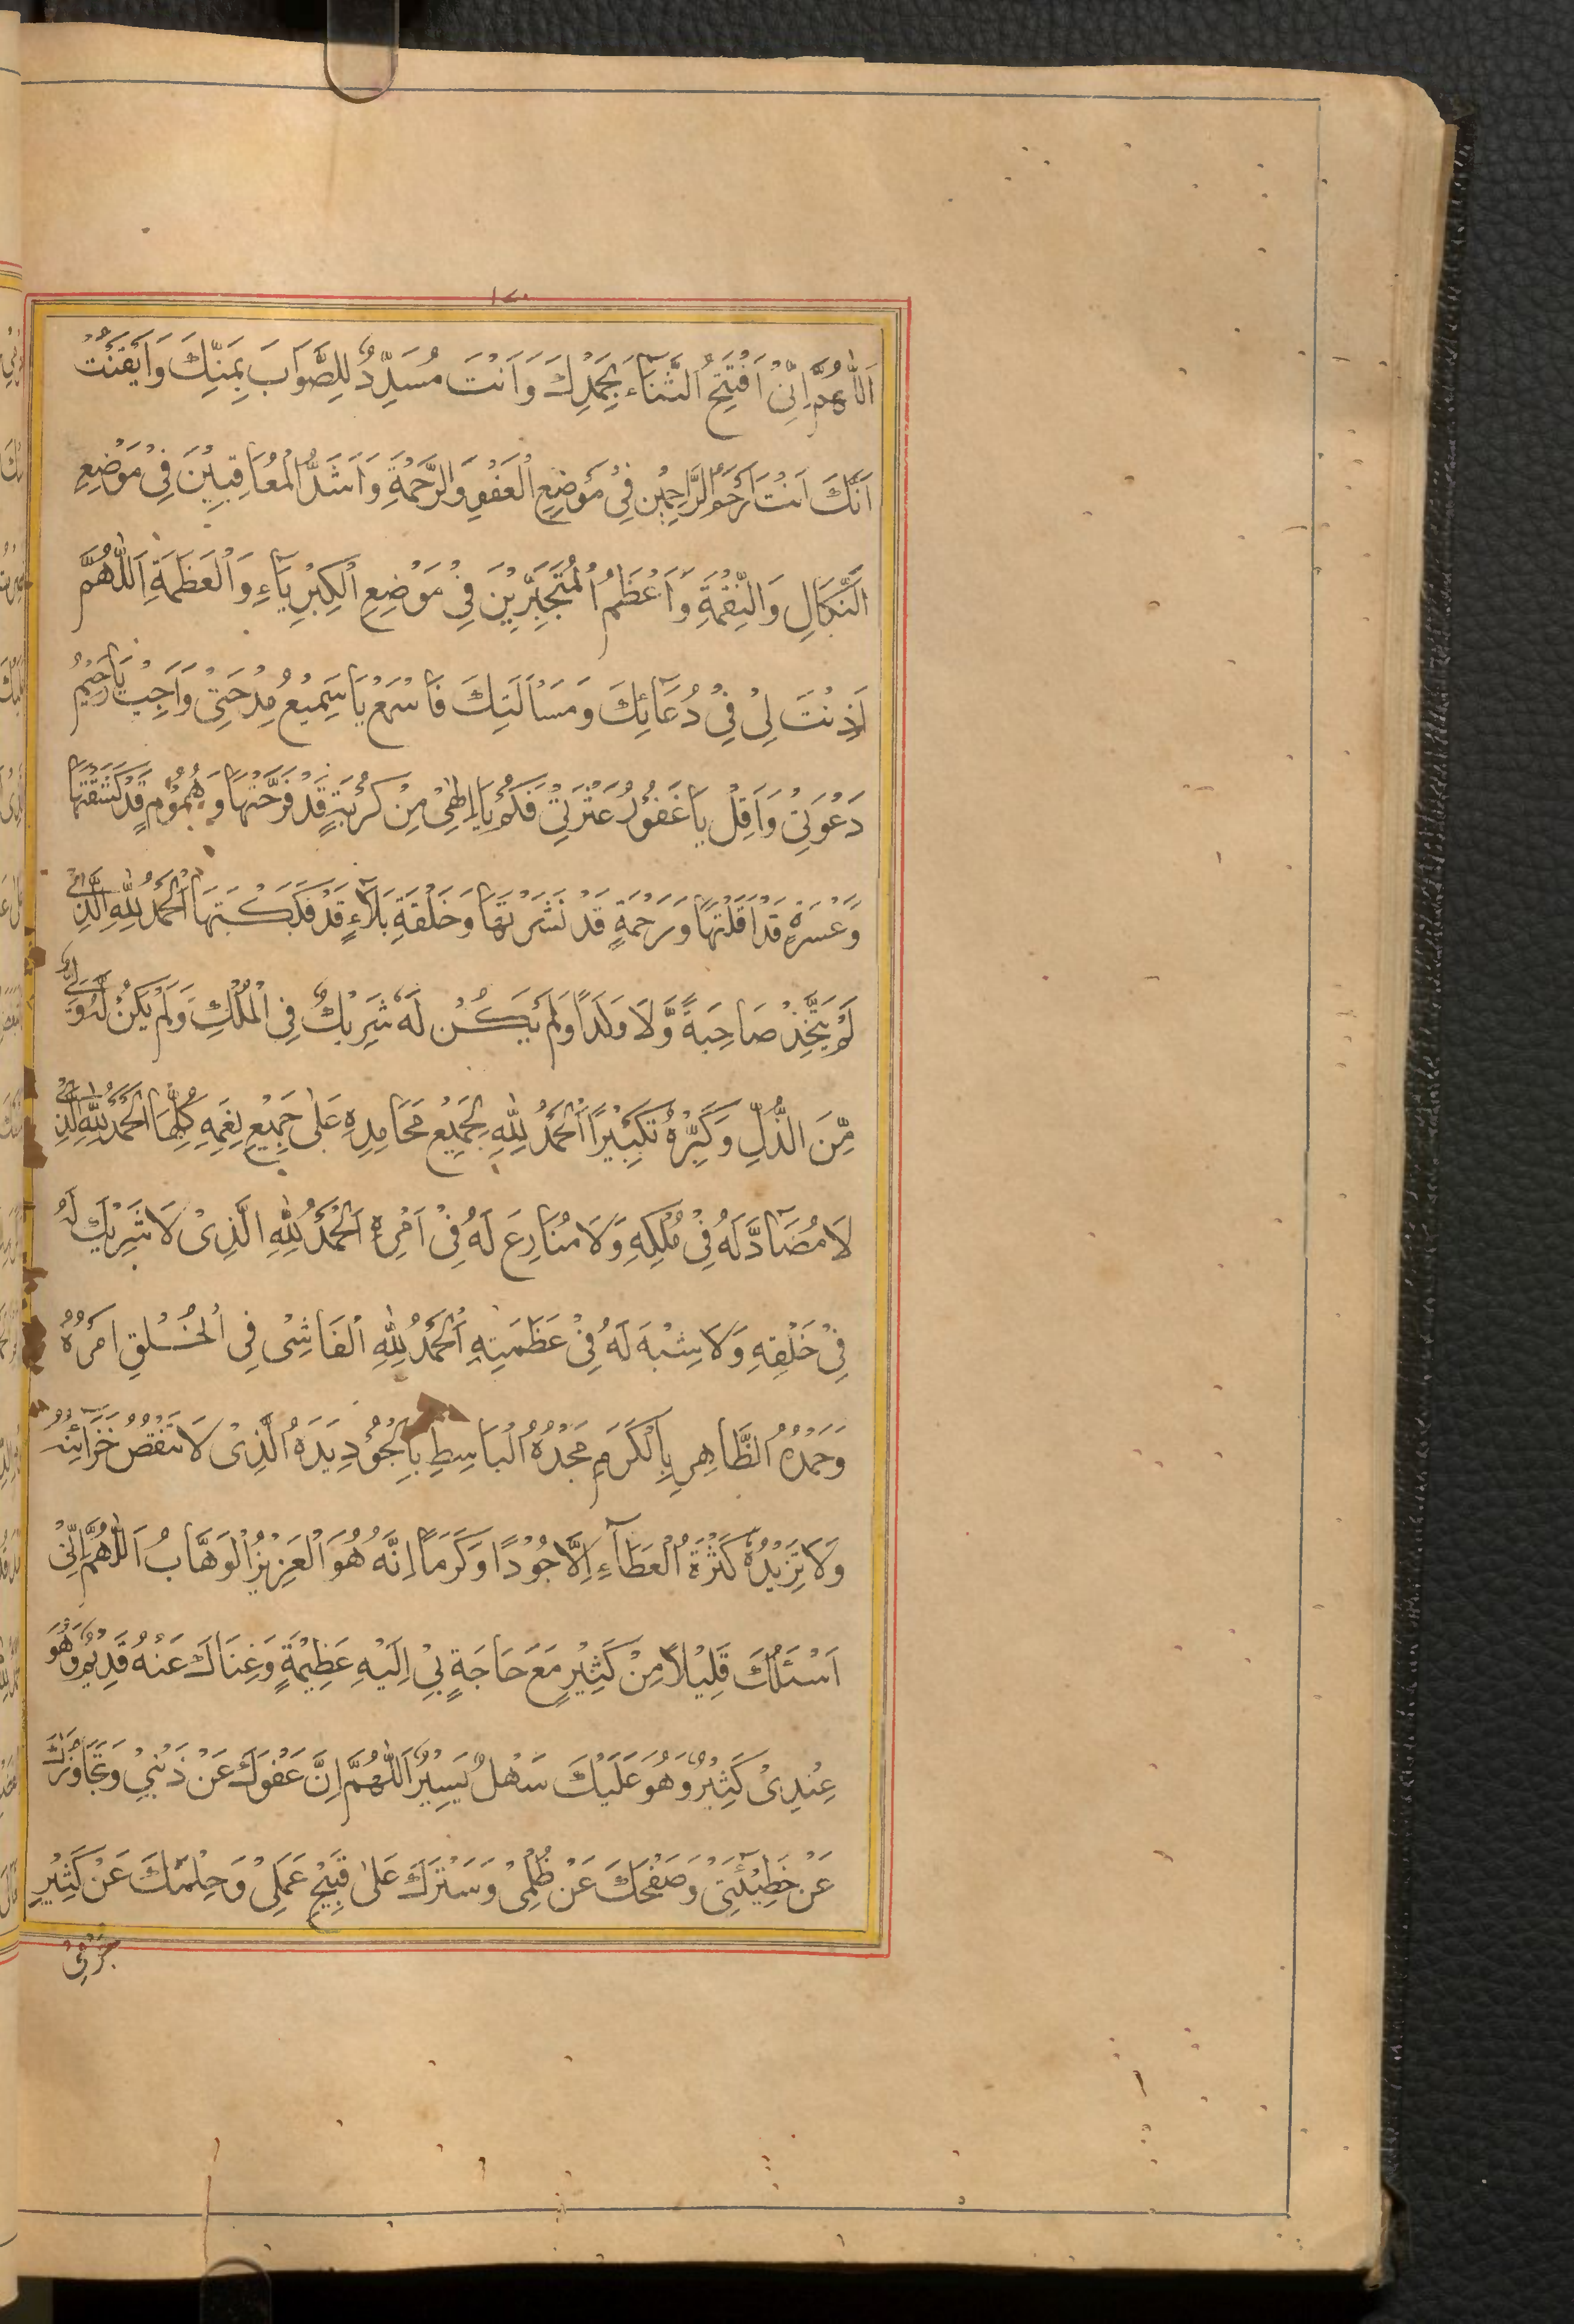 ١٧٠
اَللّٰهُمَّ اِنِّىْ اَفْتَتِحُ الثَّنَآءَ بِحَمْدِكَ وَاَنْتَ مُسَدِّدٌ لِلصَّوَابَ بِمَنِّكَ وَاَيْقَنْتُ
اَنَّكَ اَنْتَ اَرْحَمُ الرَّاحِمِيْنَ فِىْ مَوْضِعِ الْعَفْوِ وَالرَّحْمَةِ وَاَشَدُّ الْمُعَاقِبِيْنَ فِىْ مَوْضِعِ
النَّكَالِ وَالنَّقِمَةِ وَاَعْظَمُ الْمُتَجَبِّرِيْنَ فِىْ مَوْضِعِ الْكِبْرِيَآءِ وَالْعَظَمَةِ اَللّٰهُمَّ
اَذِنْتَ لِىْ فِىْ دُعَآئِكَ وَمَسْاَلَتِكَ فَاسْمَعْ يَا سَمِيْعُ مِدْحَتِىْ وَاَجِبْ يَا رَحِيْمُ
دَعْوَتِىْ وَاَقِلْ يَا غَفُوْرُ عَثْرَتِىْ فَكَمْ يَا اِلٰهِىْ مِنْ كُرْبَةٍ قَدْ فَرَّجْتَهَا وَهُمُوْمٍ قَدْ كَشَفْتَهَا
وَعُسْرَةٍ قَدْ اَقَلْتَهَا وَرَحْمَةٍ قَدْ نَشَرْتَهَا وَحَلْقَةِ بَلَآءٍ قَدْ فَكَكْتَهَا اَلْحَمْدُ لِلّٰهِ الَّذِىْ
لَمْ يَتَّخِذْ صَاحِبَةً وَّلَا وَلَدًا وَلَمْ يَكُنْ لَهٗ شَرِيْكٌ فِى الْمُلْكِ وَلَمْ يَكُنْ لَهُ وَلِىٌّ
مِّنَ الذُّلِّ وَكَبِّرْهُ تَكْبِيْرًا اَلْحَمْدُ لِلّٰهِ بِجَمِيْعِ مَحَامِدِهِ عَلٰى جَمِيْعِ نِعَمِهِ كُلِّهَا اَلْحَمْدُ لِلّٰهِ الَّذِىْ
لَا مُضَآدَّ لَهُ فِىْ مُلْكِهِ وَلَا مُنَازِعَ لَهُ فِىْ اَمْرِهِ اَلْحَمْدُ لِلّٰهِ الَّذِىْ لَا شَرِيْكَ لَهُ
فِىْ خَلْقِهِ وَلَا شِبْهَ لَهُ فِىْ عَظَمَتِهِ اَلْحَمْدُ لِلّٰهِ الْفَاشِىْ فِى الْخَلْقِ اَمْرُهُ
وَحَمْدُهُ الظَّاهِرِ بِالْكَرَمِ مَجْدُهُ الْبَاسِطِ بِالْجُوْدِ يَدَهُ الَّذِىْ لَا تَنْقُصُ خَزَآئِنُهُ
وَلَا تَزِيْدُهُ كَثْرَةُ الْعَطَآءِ اِلَّا جُوْدًا وَكَرَمًا اِنَّهُ هُوَ الْعَزِيْزُ الْوَهَّابُ اَللّٰهُمَّ اِنِّىْ
اَسْئَلُكَ قَلِيْلًا مِنْ كَثِيْرٍ مَعَ حَاجَةٍ بِىْ اِلَيْهِ عَظِيْمَةٍ وَغِنَاكَ عَنْهُ قَدِيْمٌ وَهُوَ
عِنْدِىْ كَثِيْرٌ وَهُوَ عَلَيْكَ سَهْلٌ يَسِيْرٌ اَللّٰهُمَّ اِنَّ عَفْوَكَ عَنْ ذَنْبِىْ وَتَجَاوُزَكَ
عَنْ خَطِيْئَتِىْ وَصَفْحَكَ عَنْ ظُلْمِىْ وَسَتْرَكَ عَلٰى قَبِيْحِ عَمَلِىْ وَحِلْمَكَ عَنْ كَثِيْرِ
جُرْمِىْ